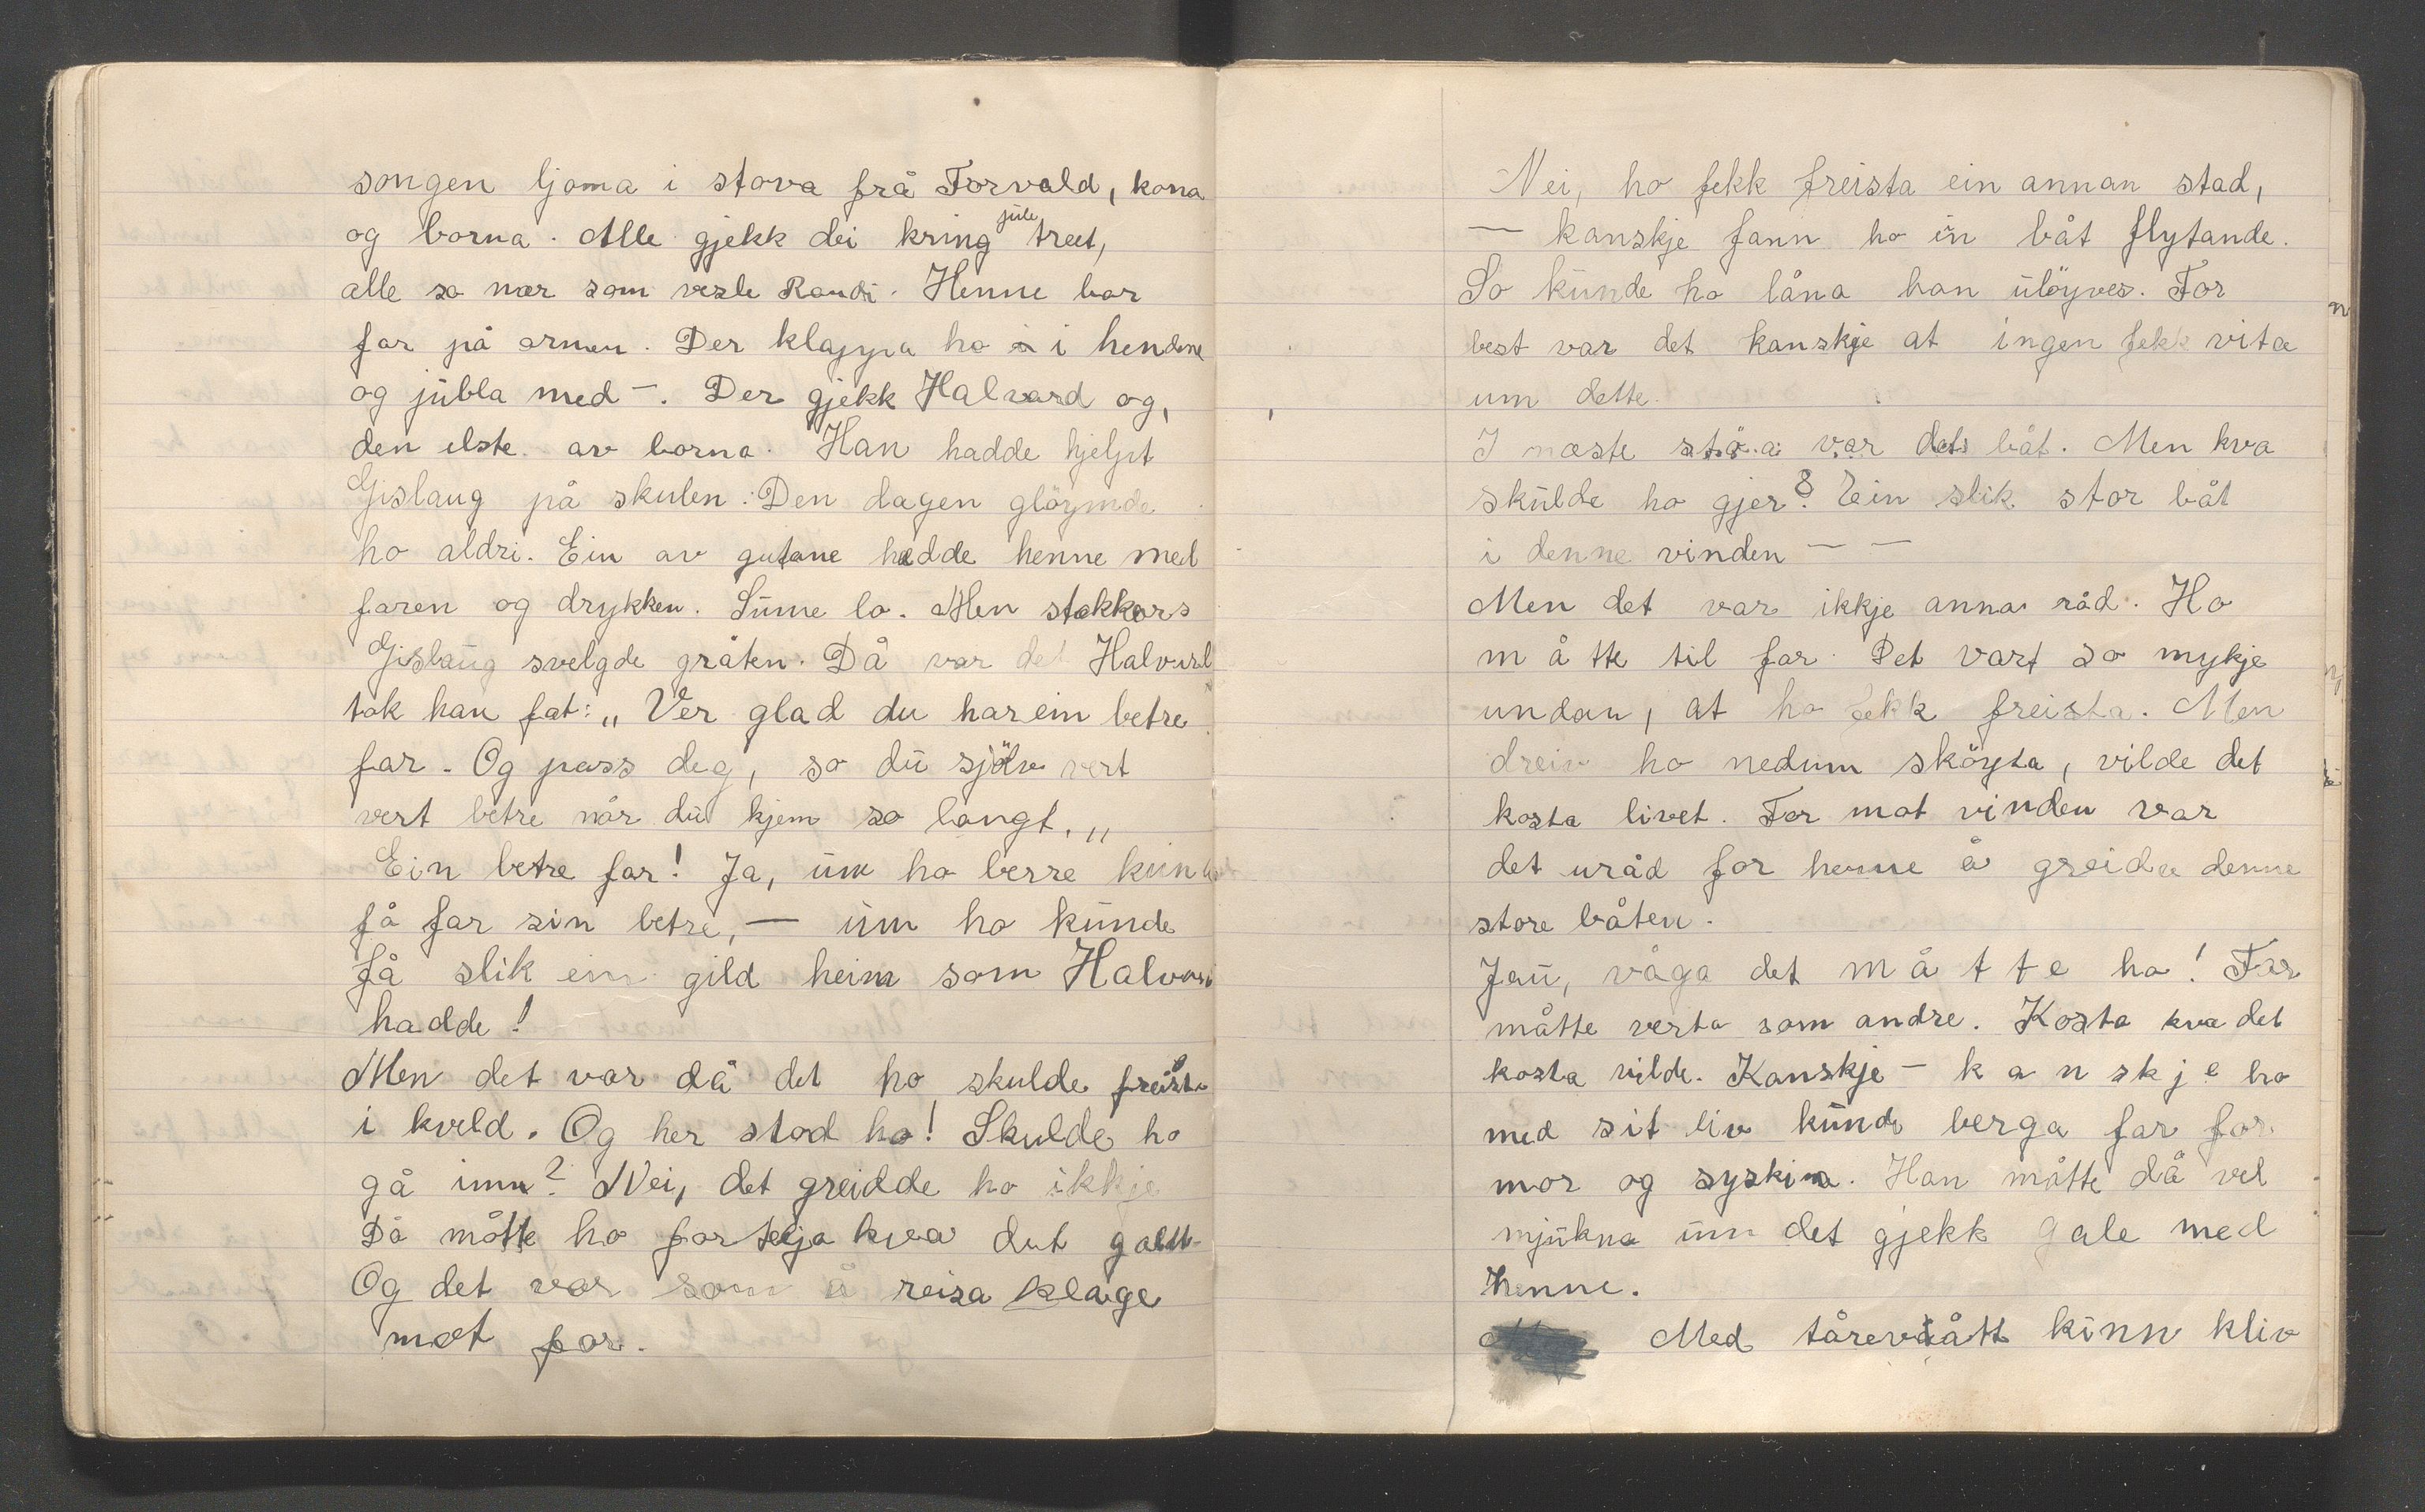 songen ljoma i stova frå Torvald, kona
og borna. Alle gjekk dei kring juletreet,
alle so nær som vesle Randi. Henne bar
far på armen. Der klappa ho i hendene
og jubla med –. Der gjekk Halvard og,
den elste av borna. Han hadde hjelpt
Gislaug på skulen. Den dagen glöymde
ho aldri. Ein av gutane hædde henne med
faren og drykken. Sume lo. Men stakkars
Gislaug svelgde gråten. Då var det Halvard
tok han fat: „Ver glad du har ein betre
far. Og pass deg, so du sjölv vert
vert betre når du kjem so langt.„
Ein betre far! Ja, um ho berre kunde
få far sin betre, — um ho kunde
få slik ein gild heim som Halvard
hadde!
Men det var då det ho skulde freista
i kveld. Og her stod ho! Skulde ho
gå inn? Nei, det greidde ho ikkje
Då måtte ho fortelja kva det galdt.
Og det var som å reisa klage
mot far.
Nei, ho fekk freista ein annan stad,
— kanskje fann ho ein båt flytande.
So kunde ho låna han ulöyves. For
best var det kanskje at ingen fekk vita
um dette.
I næste stöa var det båt. Men kva
skulde ho gjer? Ein slik stor båt
i denne vinden — —
Men det var ikkje anna råd. Ho
måtte til far. Det vart so mykje
undan, at ho fekk freista. Men
dreiv ho nedum sköyta, vilde det
kosta livet. For mot vinden var
det uråd for henne å greida denne
store båten.
Jau, våga det måtte ho! Far
måtte verta som andre. Kosta kva det
kosta vilde. Kanskje – kanskje ho
med sit liv kunde berga far for
mor og syskina. Han måtte då vel
mjukna um det gjekk gale med
henne.
Med tårevått kinn kliv